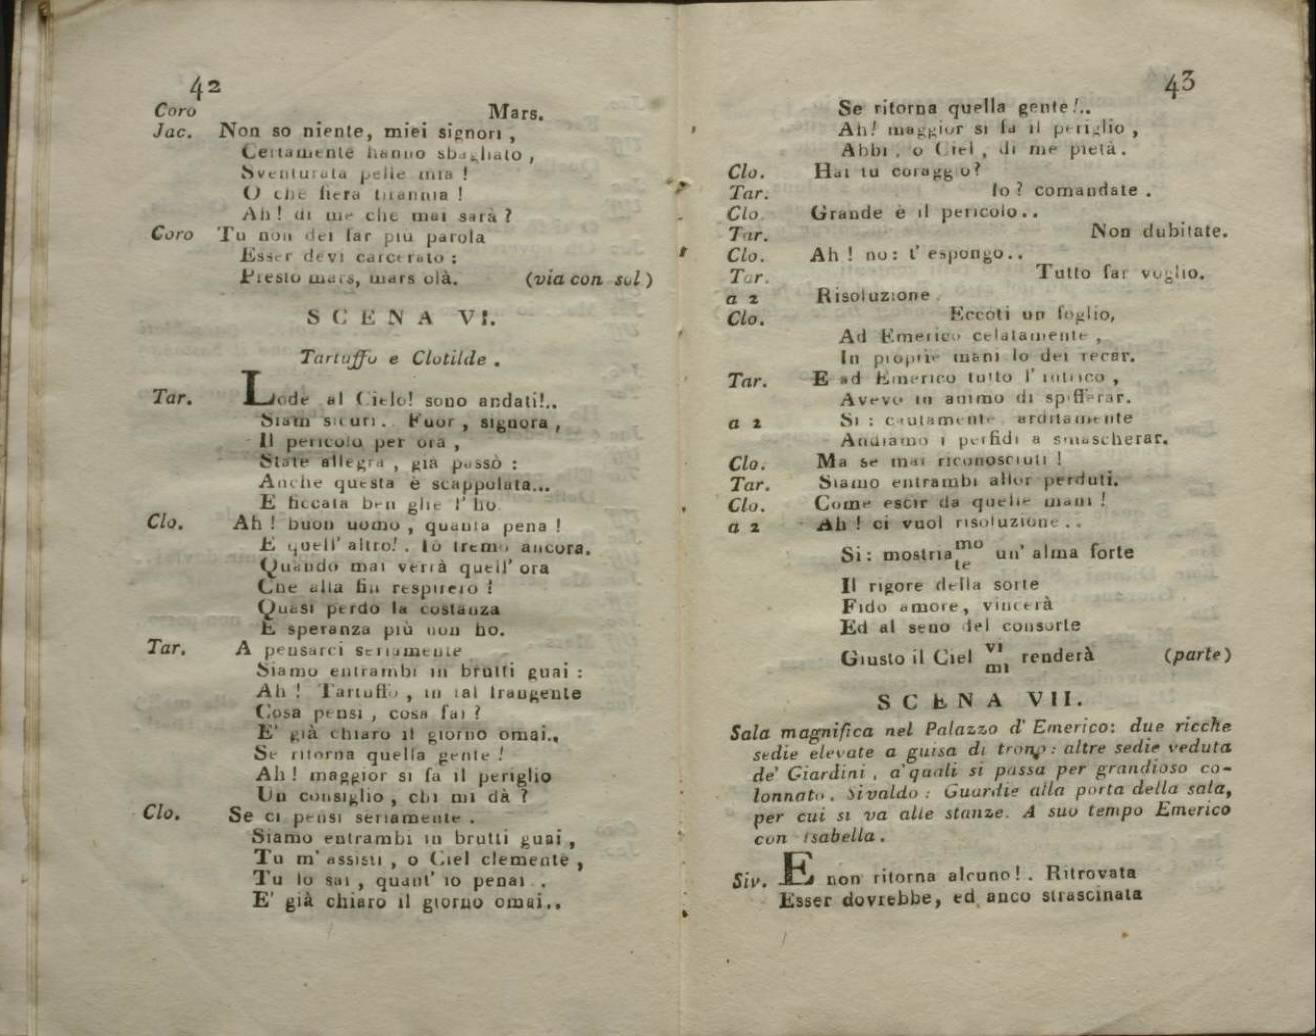 42
Coro Mars.
Jac. Non so niente, miei signori,
Certamente hanno sbagliato,
Sventurata pelle mia!
O che fiera tirannia!
Ah! di me che mai sarà?
Coro Tu non dei far più parola
Esser devi carcerato:
Presto mars, mars olà. (via con sol)
SCENA VI.
Tartuffo e Clotilde.
Tar. Lode al Cielo! sono andati!..
Siam sicuri. Fuor, signora,
Il pericolo per ora,
State allegra, già passò:
Anche questa è scappolata...
E ficcata ben glie l'ho.
Clo. Ah! buon uomo, quanta pena!
E quell'altro!. Io tremo ancora.
Quando mai verrà quell'ora
Che alla fin respirerò!
Quasi perdo la costanza
E speranza più non ho.
Tar. A pensarci seriamente
Siamo entrambi in brutti guai:
Ah! Tartuffo, in tal frangente
Cosa pensi, cosa fai?
E' già chiaro il giorno omai..
Se ritorna quella gente!
Ah! maggior si fa il periglio
Un consiglio, chi mi dà?
Clo. Se ci pensi seriamente.
Siamo entrambi in brutti guai,
Tu m'assisti, o Ciel clemente,
Tu lo sai, quant'io penai..
E' già chiaro il giorno omai..
43
Se ritorna quella gente!..
Ah! maggior si fa il periglio,
Abbi, o Ciel, di me pietà.
Clo. Hai tu coraggio?
Tar. Io? comandate.
Clo. Grande è il pericolo..
Tar. Non dubitate.
Clo. Ah! no: t'espongo..
Tar. Tutto far voglio.
a 2 Risoluzione.
Clo. Eccoti un foglio,
Ad Emerico celatamente,
In proprie mani lo dei recar.
Tar. E ad Emerico tutto l'intrico,
Avevo in animo di spifferar.
a 2 Si: cautamente, arditamente
Andiamo i perfidi a smascherar.
Clo. Ma se mai riconosciuti!
Tar. Siamo entrambi allor perduti.
Clo. Come escir da quelle mani!
a 2 Ah! ci vuol risoluzione..
Si: mostria mo te un'alma forte
Il rigore della sorte
Fido amore, vincerà
Ed al seno del consorte
Giusto il Ciel vi mi renderà (parte)
SCENA VII.
Sala magnifica nel Palazzo d'Emerico: due ricche
sedie elevate a guisa di trono: altre sedie veduta
de' Giardini, a' quali si passa per grandioso co-
lonnato. Sivaldo: Guardie alla porta della sala,
per cui si va alle stanze. A suo tempo Emerico
con Isabella.
Siv. E non ritorna alcuno!. Ritrovata
Esser dovrebbe, ed anco strascinata